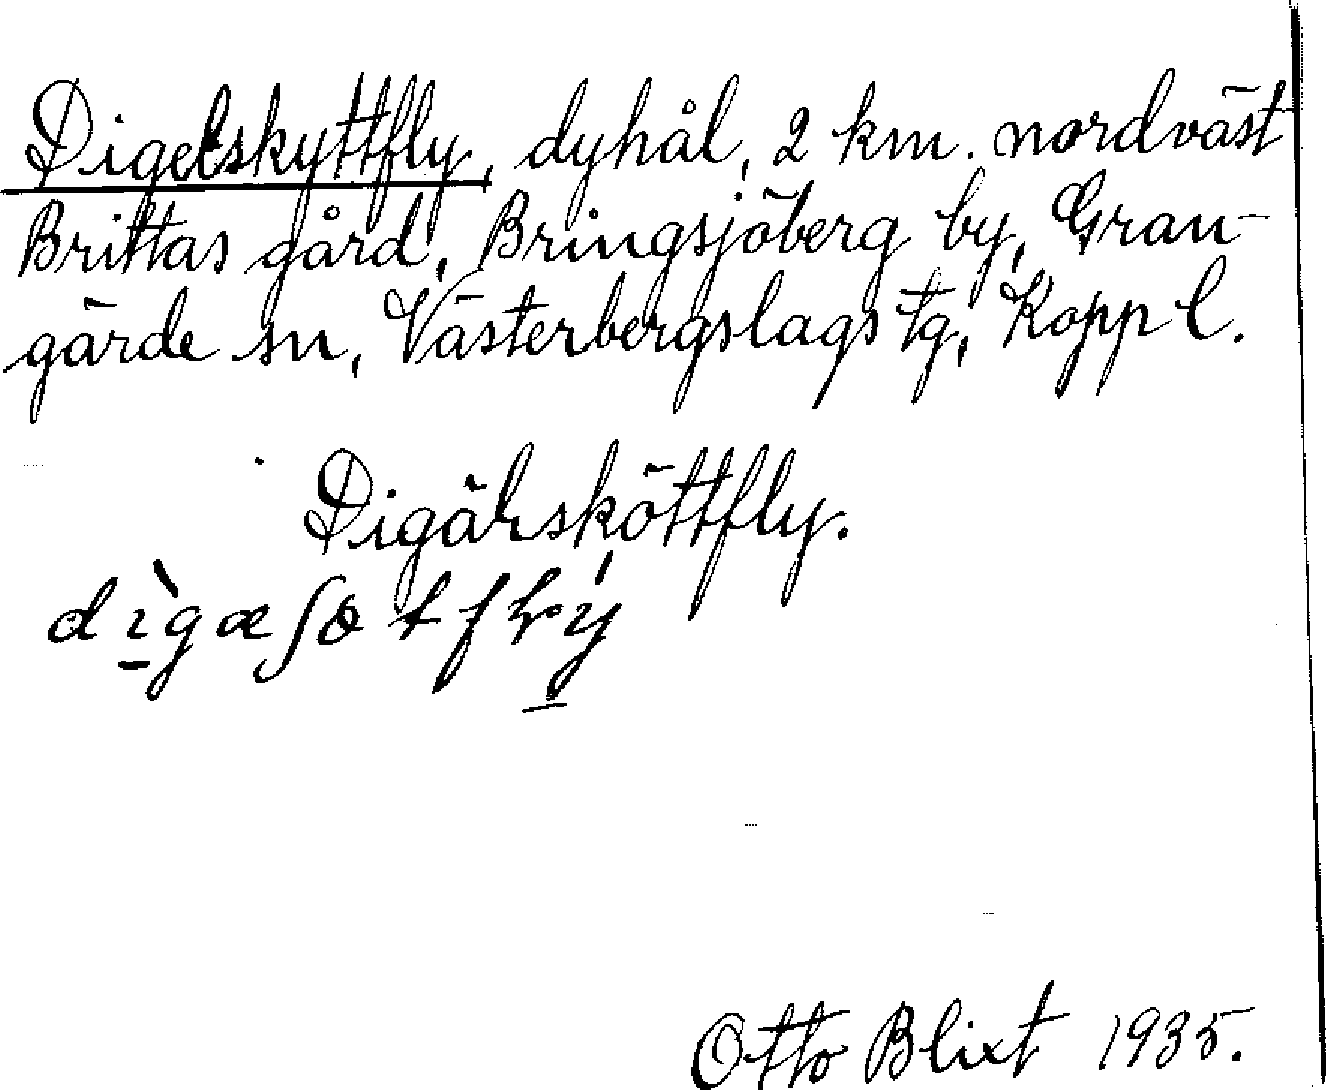 Digelskyttfly, dyhål, 2 km. nordväst
Brittas gård, Bringsjöberg by, Gran-
gärde sn, Västerbergslags tg, Kopp l.
Digälsköttfly.
Otto Blixt 1935.